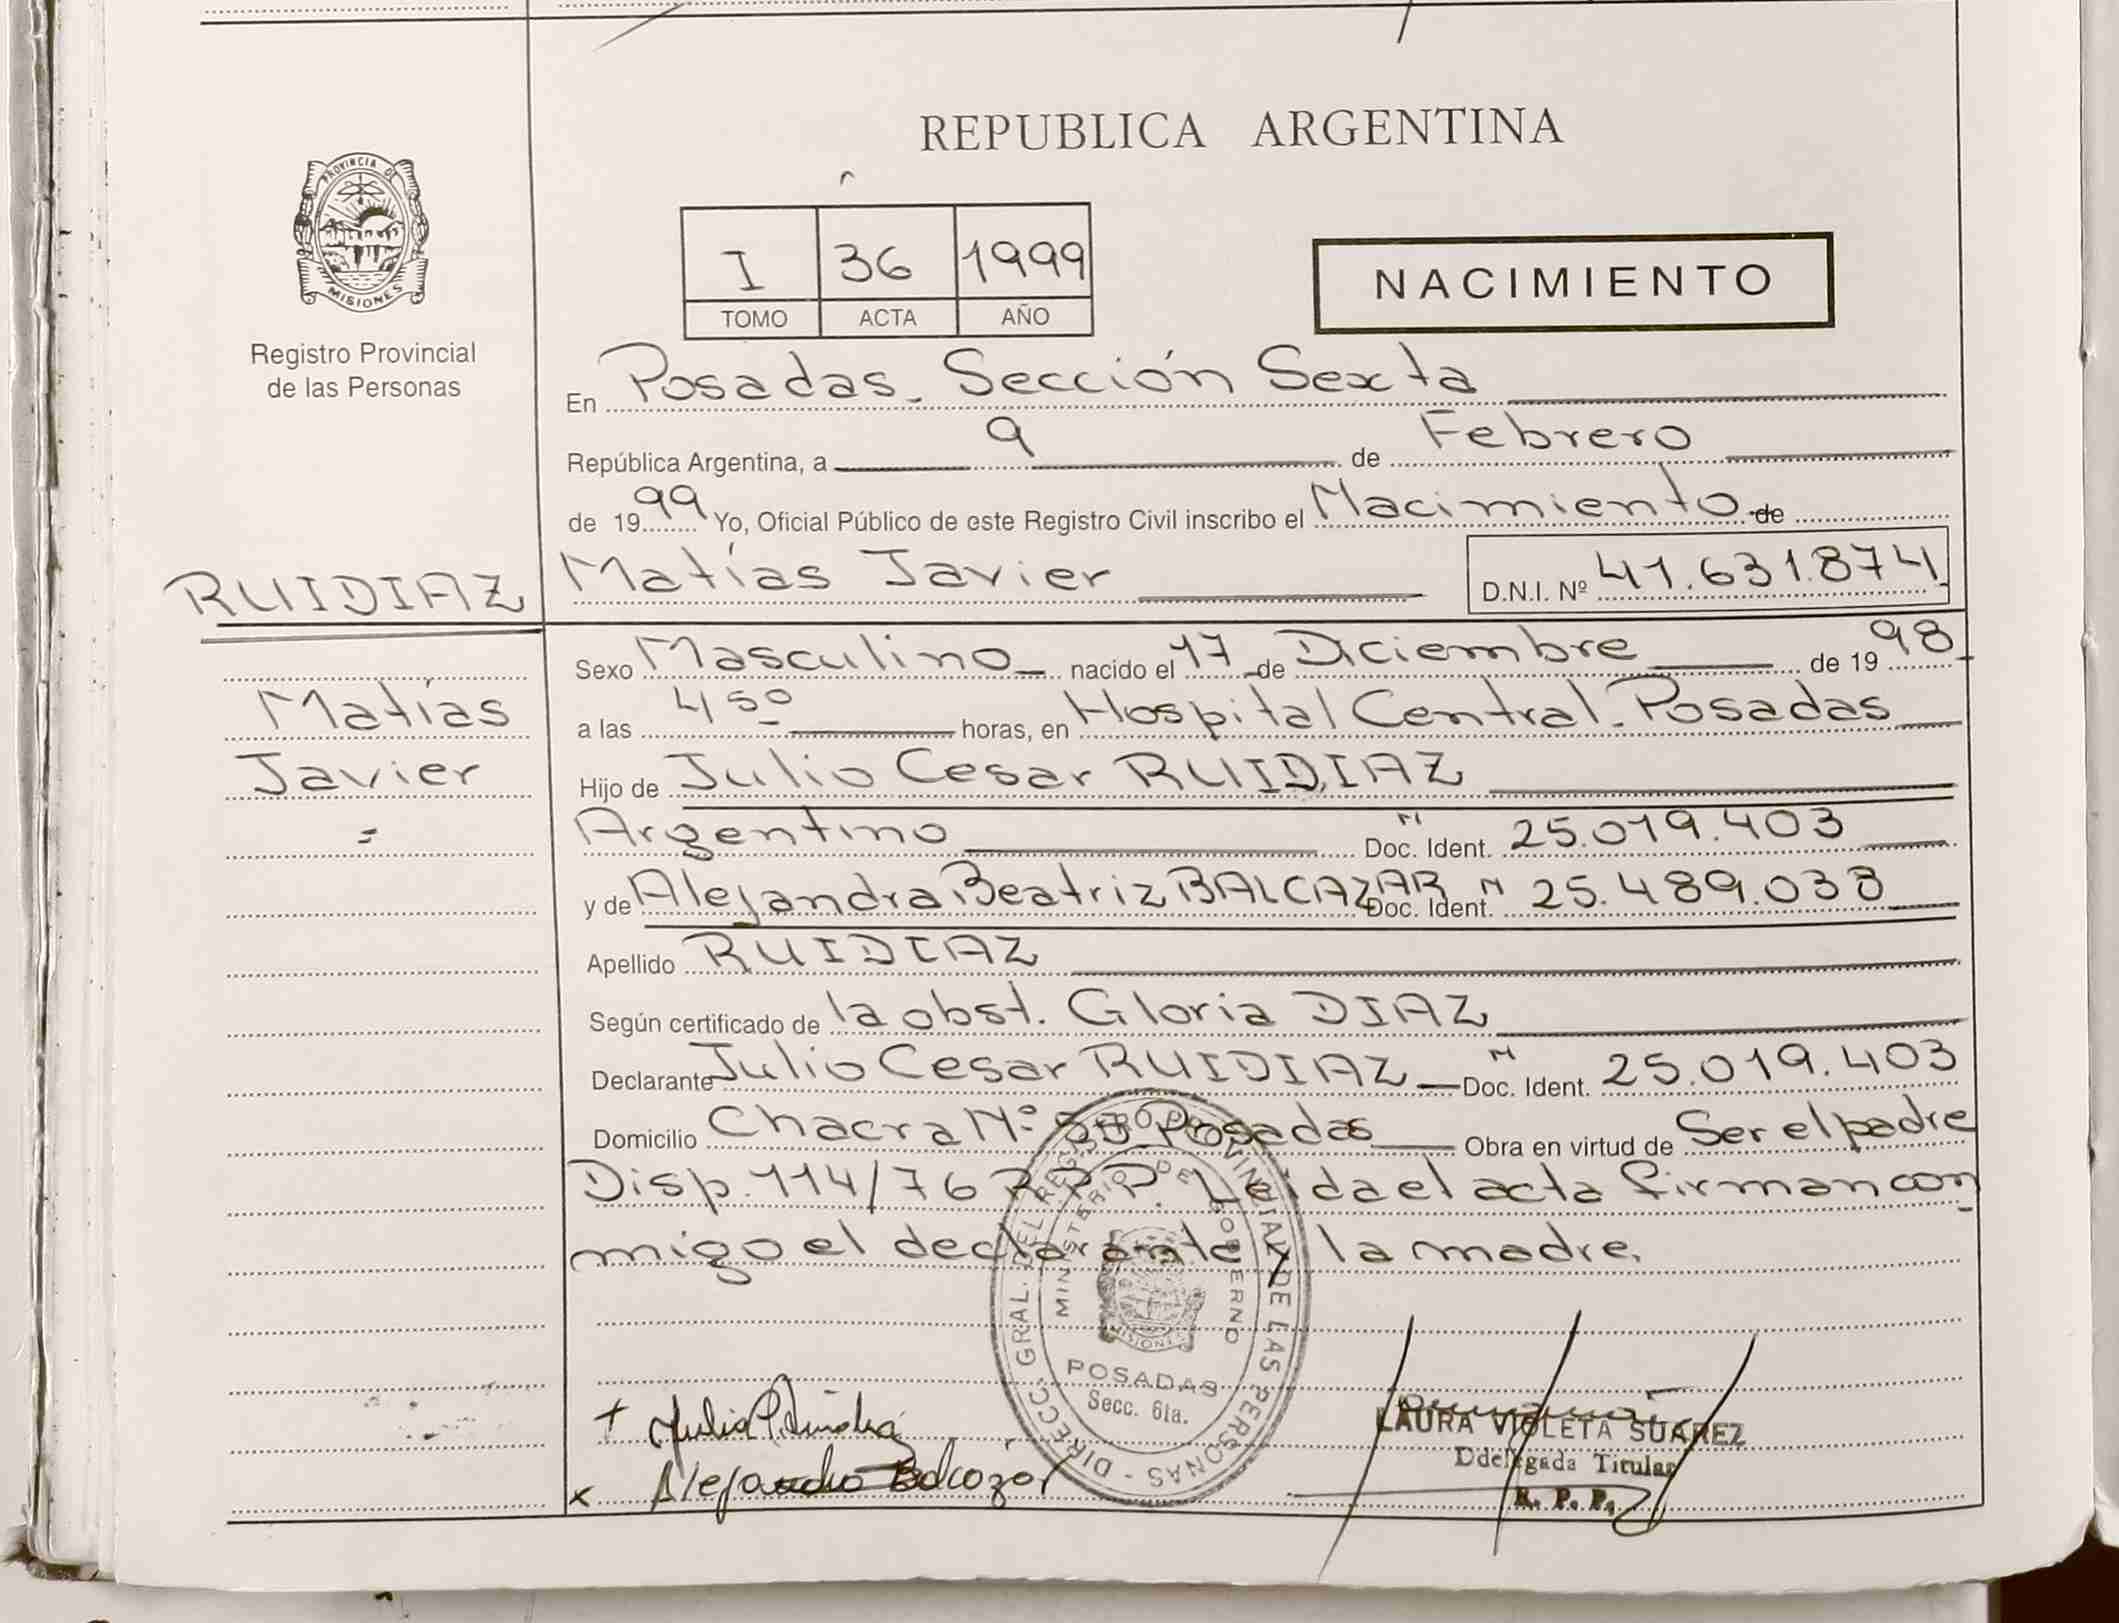 REPUBLICA ARGENTINA
PROVINCIA DE MISIONES
Registro Provincial
de las Personas
I 36 1999
TOMO ACTA AÑO
NACIMIENTO
En Posadas. Sección Sexta
República Argentina, a 9 de Febrero
de 1999 Yo, Oficial Público de este Registro Civil inscribo el Nacimiento de
RUIDIAZ Matías Javier D.N.I. Nº 41.631.874
Sexo Masculino nacido el 17 de Diciembre de 1998
Matías
a las 4 50 horas, en Hospital Central. Posadas
Javier
Hijo de Julio Cesar RUIDIAZ
Argentino Doc. Ident. N 25.019.403
y de Alejandra Beatriz BALCAZAR Doc. Ident. N 25.489.038
Apellido RUIDIAZ
Según certificado de la obst. Gloria DIAZ
Declarante Julio Cesar RUIDIAZ Doc. Ident. N 25.019.403
Domicilio Chacra Nº Posadas Obra en virtud de Ser el padre
Disp. 114/76 R.P.P. Leída el acta firman con
migo el declarante y la madre.
DIRECC. GRAL. DEL REGISTRO PROVINCIAL DE LAS PERSONAS
MINISTERIO DE GOBIERNO
MISIONES
POSADAS
Secc. 6ta.
Alejandra Balcázar
LAURA VIOLETA SUAREZ
Ddelegada Titular
R. P. P.